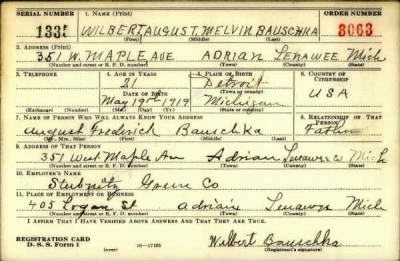 SERIAL NUMBER
1. NAME (Print)
ORDER NUMBER
1331
WILBERT AUGUST MELVIN BAUSCHKA
3063
(First) (Middle) (Last)
2. ADDRESS (Print)
351 W. MAPLE AVE ADRIAN LENAWEE Mich
(Number and street or R. F. D. number) (Town) (County) (State)
3. TELEPHONE
4. AGE IN YEARS
5. PLACE OF BIRTH
6. COUNTRY OF CITIZENSHIP
21
Detroit
DATE OF BIRTH
(Town or county)
USA
May 19th 1919
Michigan
(Exchange) (Number)
(Mo.) (Day) (Yr.)
(State or country)
7. NAME OF PERSON WHO WILL ALWAYS KNOW YOUR ADDRESS
8. RELATIONSHIP OF THAT PERSON
August Fredrich Bauschka
Father
(Mr., Mrs., Miss) (First) (Middle) (Last)
9. ADDRESS OF THAT PERSON
351 West Maple Ave Adrian Lenawee Mich
(Number and street or R. F. D. number) (Town) (County) (State)
10. EMPLOYER'S NAME
Stubnitz Greene Co
11. PLACE OF EMPLOYMENT OR BUSINESS
405 Logan St Adrian Lenawee Mich
(Number and street or R. F. D. number) (Town) (County) (State)
I AFFIRM THAT I HAVE VERIFIED ABOVE ANSWERS AND THAT THEY ARE TRUE.
REGISTRATION CARD
D. S. S. Form 1
16-17105
Wilbert Bauschka
(Registrant's signature)